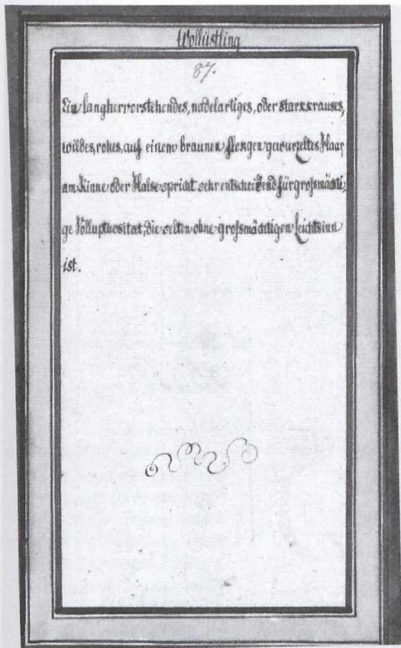 Wollüstling
87.
Ein langhervorstehendes, nadelartiges, oder starkkrauses,
wildes, rohes, auf einem braunen Flecken gewurzeltes Haar,
am Kinne oder Halse spricht sehr entscheidend für großmächti,
ge Volluptuositæt, die selten ohne großmächtigen Leichtsinn
ist.